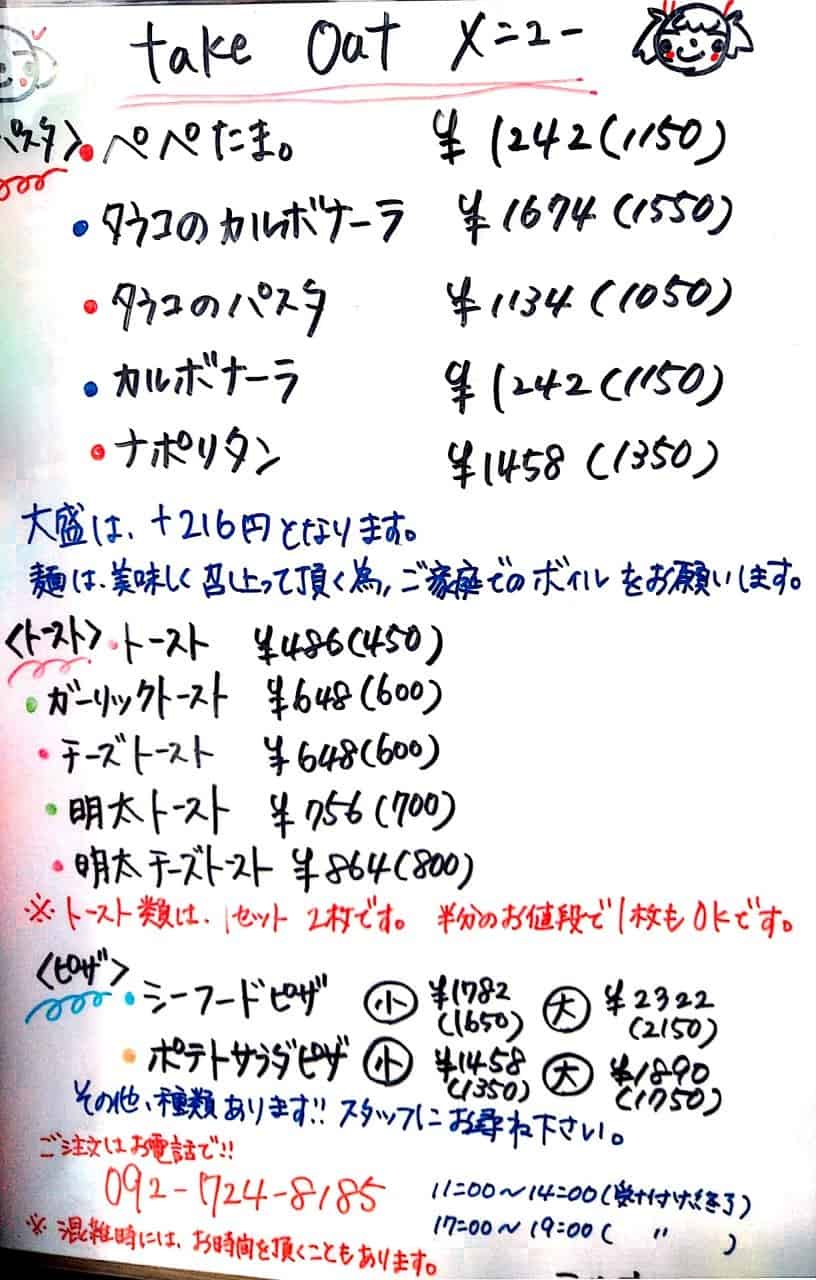 take out メニュー
パスタ〉・ペペたま。 ¥1242(1150)
・タラコのカルボナーラ ¥1674(1550)
・タラコのパスタ ¥1134(1050)
・カルボナーラ ¥1242(1150)
・ナポリタン ¥1458(1350)
大盛は、+216円となります。
麺は、美味しく召し上って頂く為、ご家庭でのボイルをお願いします。
〈トースト〉・トースト ¥486(450)
・ガーリックトースト ¥648(600)
・チーズトースト ¥648(600)
・明太トースト ¥756(700)
・明太チーズトースト ¥864(800)
※トースト類は、1セット2枚です。 半分のお値段で1枚もOKです。
〈ピザ〉・シーフードピザ 小 ¥1782(1650) 大 ¥2322(2150)
・ポテトサラダピザ 小 ¥1458(1350) 大 ¥1890(1750)
その他、種類あります!! スタッフにお尋ね下さい。
ご注文はお電話で!!
092-724-8185
11:00〜14:00(受け付け終了)
17:00〜19:00( 〃 )
※混雑時には、お時間を頂くこともあります。